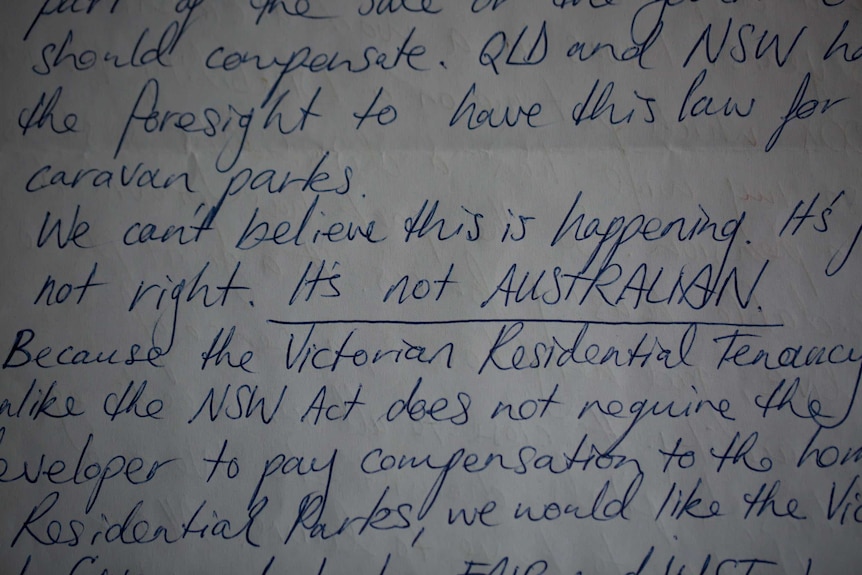 part of the sale or the
should compensate. QLD and NSW
the foresight to have this law for
caravan parks.
We can't believe this is happening. It's
not right. It's not AUSTRALIAN.
Because the Victorian Residential Tenancy
the NSW Act does not require the
to pay compensation to the
Residential Parks, we would like the
FAIR and JUST